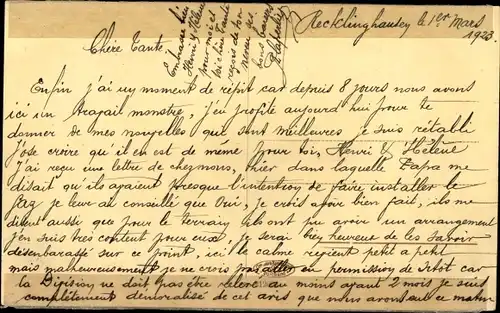 Recklinghausen le 1er Mars
1923
Chère Tante,
Enfin j'ai un moment de répit car depuis 8 jours nous avons
ici un travail monstre, j'en profite aujourd'hui pour te
donner de mes nouvelles qui sont meilleures je suis rétabli
J'ose croire qu'il en est de même pour toi, Henri & Hélène
J'ai reçu une lettre de chez nous, hier dans laquelle Papa me
disait qu'ils avaient presque l'intention de faire installer le
Gaz je leur ai conseillé que Oui, je crois avoir bien fait, ils me
disent aussi que pour le terrain ils ont pu avoir un arrangement
j'en suis très content pour eux, je serai bien heureux de les savoir
désenbarassé sur ce point, ici le calme revient petit a petit
mais malheureusement je ne crois pas aller en permission de sitot car
la Division ne doit pas être relevé au moins avant 2 mois je suis
complètement démoralisé de cet avis que nous avons eu ce matin
Embrasse bien
Henri & Hélène
pour moi et
toi chère Tante
reçois de ton
neveu
bons baisers